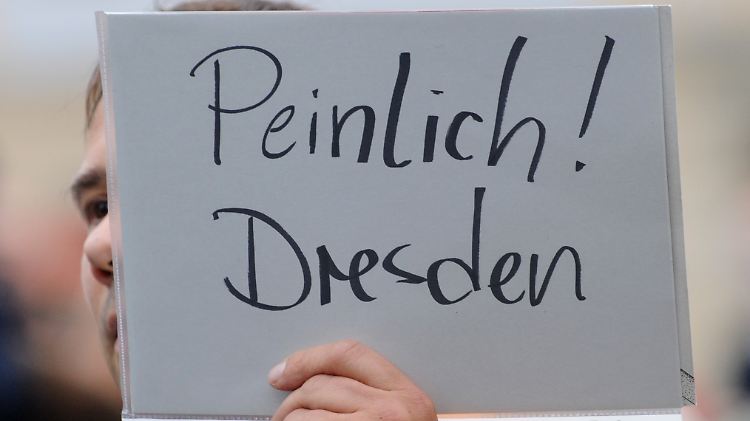 Peinlich!
Dresden